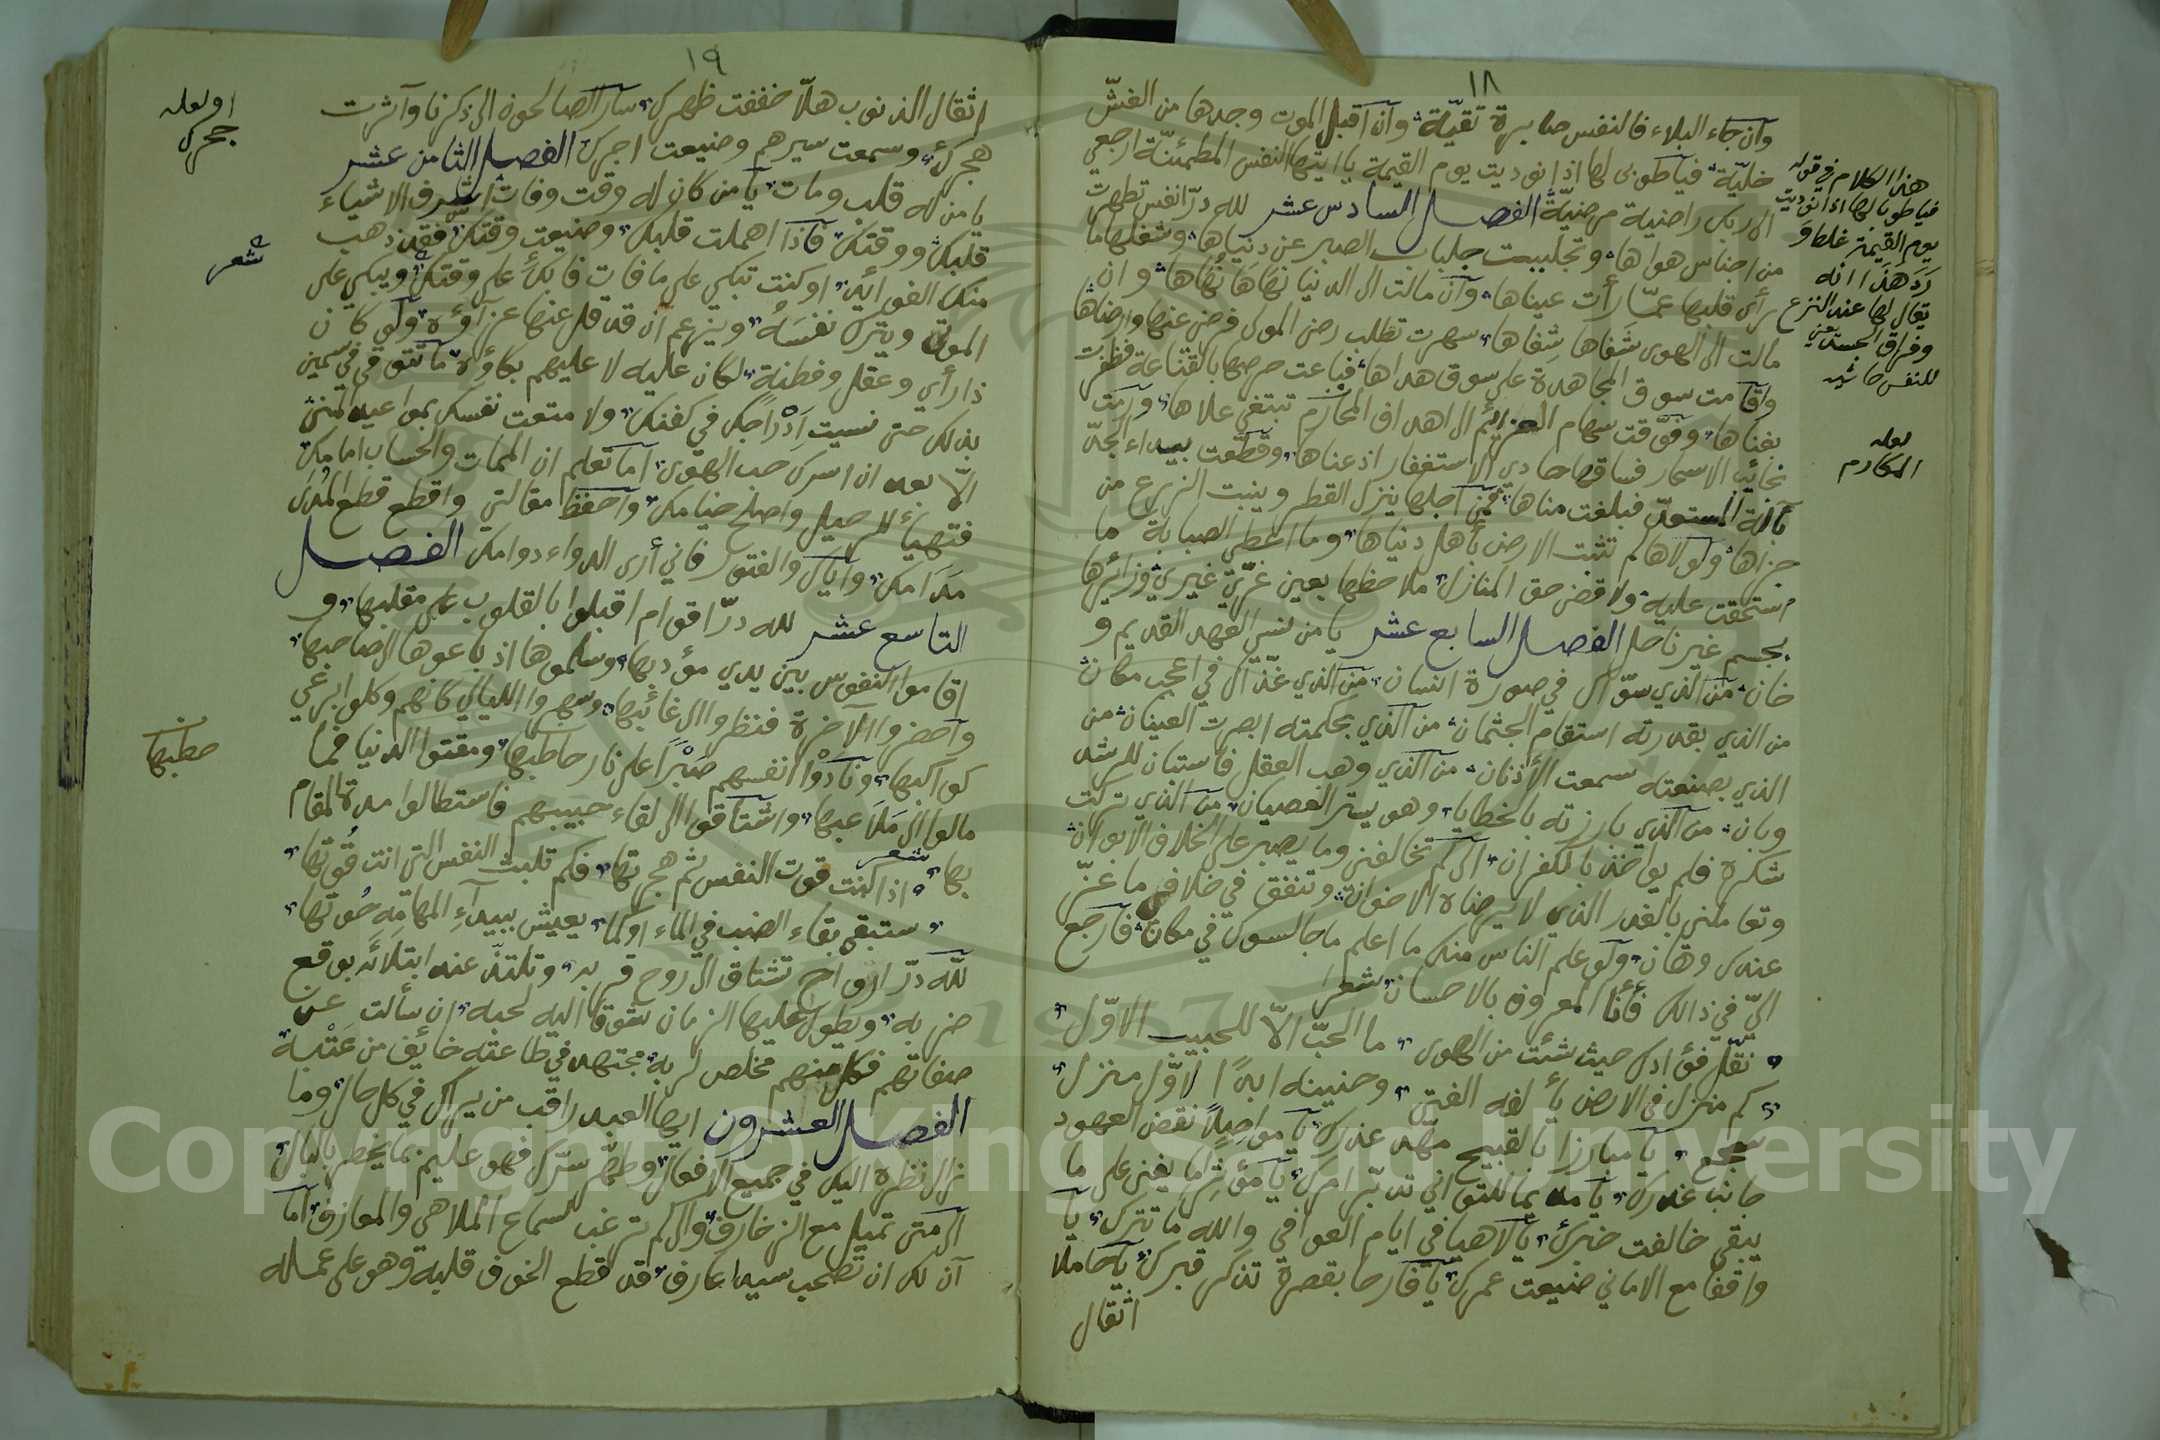 ١٨
وآن جاء البلاء فالنفس صابرة تقيّة وآن اقبل الموت وجدها من الغشّ
خليّة فياطوبى لها اذا نوديت يوم القيمة يا ايتها النفس المطمئنّة ارجعي
الى ربك راضية مرضيّة الفصل السادس عشر لله درّ انفس تطهرت
من اجناس هواها وتجلببت جلباب الصبر عن دنياها وشغلها ما
رأى قلبها عمّا رأت عيناها وآن مالت الى الدنيا نهاها نُهاها وان
مالت الى الهوى شفاها شِفاها سهرت تطلب رضى المولى فرضي عنها وارضاها
واقامت سوق المجاهدة على سوق هداها فباعت حرصها بالقناعة فظفرت
بغناها وفوّقت سهام العزائم الى اهداف المحارم تبتغي علاها ورمت
نجائب الاسحار فساقها حادي الاستغفار اذ عناها وقطعت بيداء الجدّ
بآلة المستعدّ فبلغت مناها فمن اجلها ينزل القطر وينبت الزرع من
جزاها ولولاها لم تثبت الارض بأهل دنياها وما اعطي الصبابة ما
استحقت عليه ولا قضى حق المنازل ملاحظها بعين غرّتي غيري وزائرها
بجسم غير ناحل الفصل السابع عشر يا من نسي العهد القديم و
خان من الذي سوّاك في صورة انسان من الذي غذّاك في اعجب مكان
من الذي بقدرته استقام الجثمان من الذي بحكمته ابصرت العينان من
الذي بصنعته سمعت الأذنان من الذي وهب العقل فاستبان للرشد
وبان من الذي بارزته بالخطايا وهو يستر العصيان من الذي تركت
شكره فلم يواخذ بالكفران الى كم تخالفني وما يصبر على الخلاف الابوان
وتعاملني بالغدر الذي لا يرضاه الاخوان وتنفق في خلافي ما عزّ
عندك وهان ولو علم الناس منك ما اعلم ما جالسوك في مكان فارجع
اليّ في ذالك فأنا المعروف بالاحسان شعر
نقّل فؤادك حيث شئت من الهوى ما الحبّ الّا للحبيب الاوّل
كم منزل في الارض يألفه الفتى وحنينه ابدًا لاوّل منزل
سجع يا مبارزا بالقبيح مهّد عذرك يا مواصلًا نقض العهود
جانب غدرك يا مديما للتواني تدبّر امرك يا مؤثرا ما يفنى على ما
يبقى خالفت خبرك يا لاهيا في ايام العوافي والله ما تترك يا
واقفا مع الاماني ضيعت عمرك يا فارحا بقصره تذكر قبرك يا حاملا
اثقال
هذا الكلام في قوله
فياطوبا لها اذا نوديت
يوم القيمة غلط و
رَدَ هذا انه
يقال لها عند النزع
وفراق الجسد
للنفس حاشيه
لعله
المكارم
١٩
اثقال الذنوب هلّا خففت ظهرك سار الصالحون الى ذكرنا وآثرت
هجرك وسمعت سيرهم وضيعت اجرك الفصل الثامن عشر
يا من له قلب ومات يا من كان له وقت وفات اشرف الاشياء
قلبك ووقتك فاذا اهملت قلبك وضيعت وقتك فقد ذهب
منك الفوائد او كنت تبكي على ما فات فابك على وقتك ويبكي على
الموتى ويترك نفسَهُ ويزعم ان قد قل عنها عزآؤه ولو كان
ذا رأي وعقل وفطنة لكان عليه لا عليهم بكاؤه ما تتق في سمين
بذلك حتى نسيت ادراجك في كفنك ولا متعت نفسك بمواعيد المنى
الّا بعد ان اسرك حب الهوى اما تعلم ان الممات والحساب امامك
فتهيأ للرحيل واصلح خيامك واحفظ مقالتي واقطع قطع المُدَى
مَدامك وايّاك والفتور فاني أرى الدواء دوامك الفصل
التاسع عشر لله درّ اقوام اقبلوا بالقلوب على مقلبها و
اقاموا النفوس بين يدي مؤدبها وسلموها اذ باعوها لصاحبها
وآحضروا الآخرة فنظروا الى غائبها وسهروا الليالي كأنهم وكلوا برعي
كواكبها ونادَوْا انفسهم صَبْرًا على نار حاطبها ومقتوا الدنيا فما
مالوا الى مَلاعبها واشتاقوا الى لقاء حبيبهم فاستطالوا مدة المقام
بها شعر اذا كنت قوت النفس ثم هجرتها فكم تلبث النفس التي انت قُوتها
ستبقى بقاء الضب في الماء او كما يعيش ببيدآء المهامِهِ حُوتها
للّه درّ ارواح تشتاق الى روح قربه وتلتذّ عند ابتلائه بوقع
ضربه ويطول عليها الزمان شوقا اليه لحبه ان سألت عن
صفاتهم فكل منهم مخلص لربه مجتهد في طاعته خائف من عَتْبه
الفصل العشرون ايها العبد راقب من يراك في كل حال وما
زال نظره اليك في جميع الافعال وطهّر سرّك فهو عليم بما يخطر بالبال
الى متى تميل مع الزخارف والى كم ترغب لسماع الملاهي والمعازف اما
آن لك ان تصحب سيدا عارف قد قطع الخوف قلبه وهو على عمله
او لعله
حجرك
شعر
خطبها
Copyright © King Saud University
1957